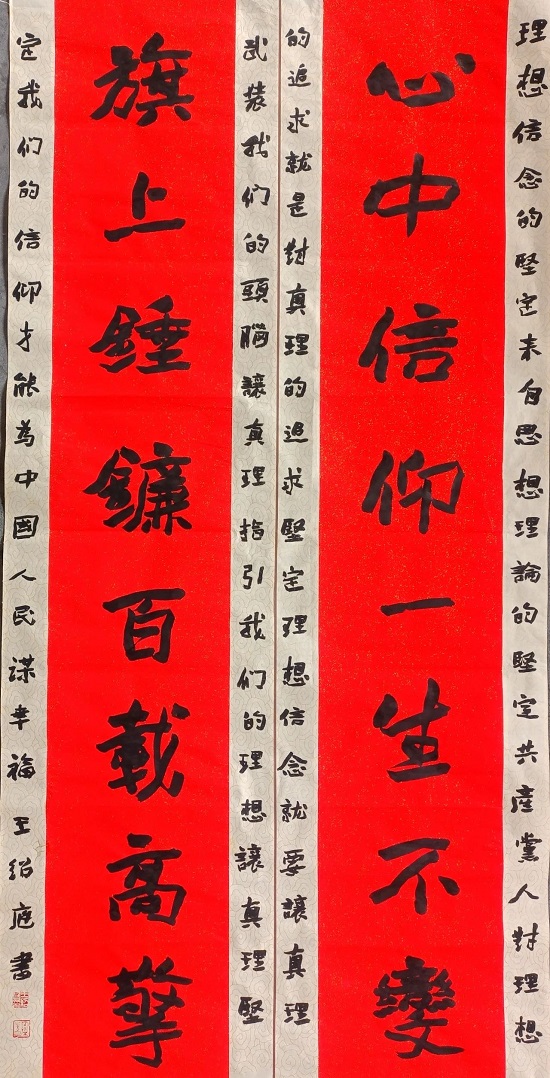 理想信念的堅定来自思想理論的堅定共產黨人對理想
心中信仰一生不變
的追求就是對真理的追求堅定理想信念就要讓真理
武裝我们的頭腦讓真理指引我们的理想讓真理堅
旗上錘鐮百載高擎
定我们的信仰才能為中國人民謀幸福王绍庭書